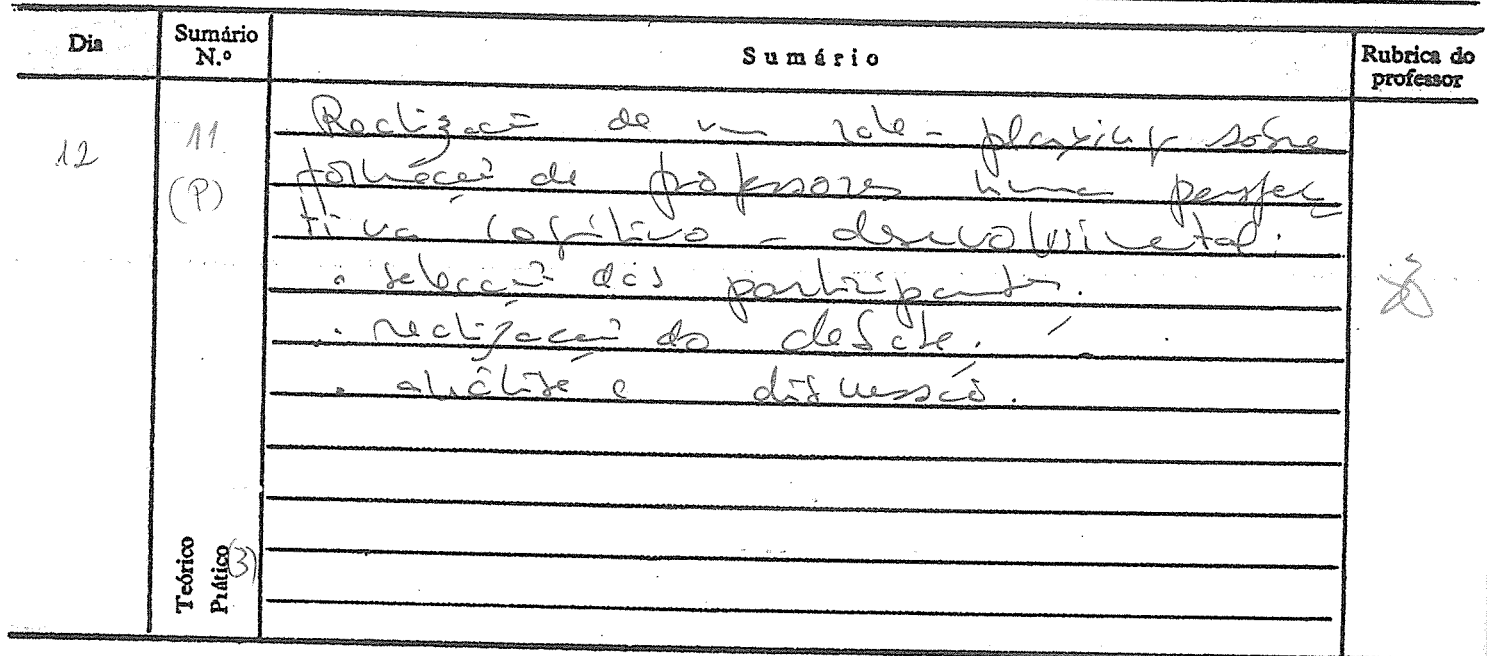 Dia
Sumário N.º
Sumário
Rubrica do professor
12
11
(P)
Realização de um role-playing sobre
formação de professores numa perspec
tiva cognitivo-desenvolvimental:
. selecção dos participantes.
. realização do debate.
. análise e discussão.
Teórico
Prático (3)